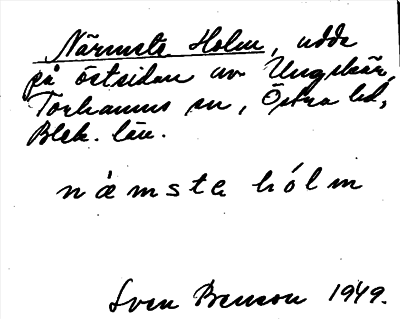 Närmste Holm, udde
på östsidan av Ungskär,
Torhamns sn, Östra hd,
Blek. län.
næmste hólm
Sven Benson 1949.